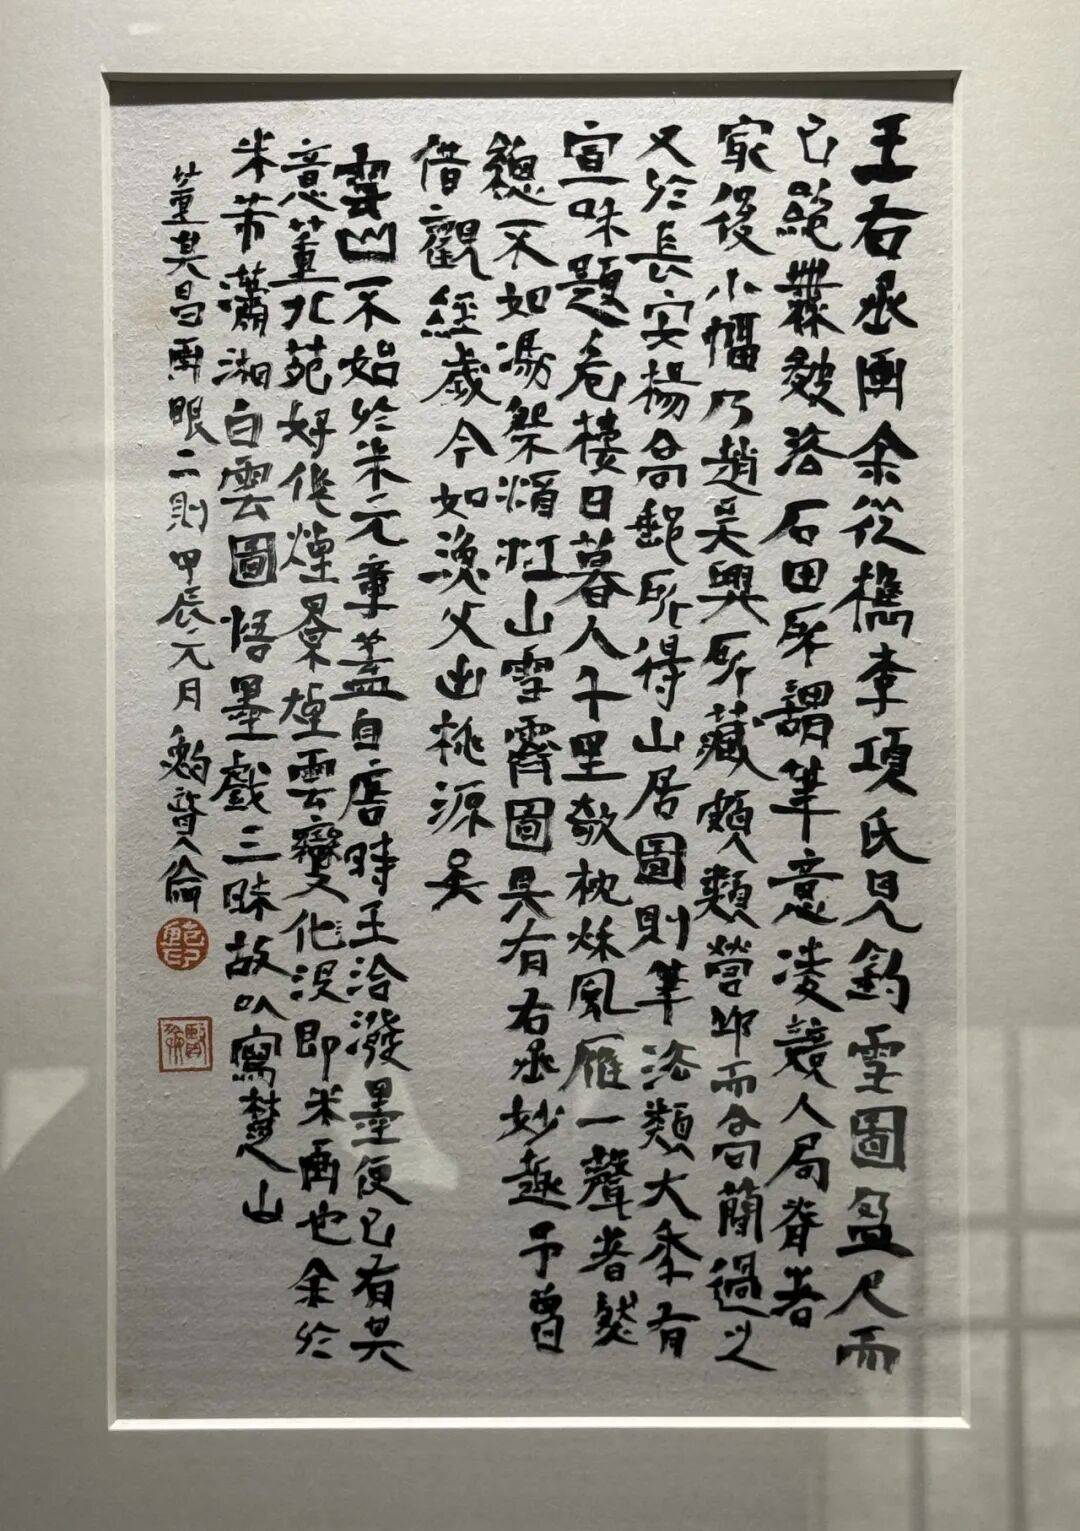 王右丞画余從檇李項氏見釣雪圖盈尺而
已絕無皴法石田所謂筆意凌競人局脊者
最後小幅乃趙吳興所藏頗類營邱而高簡過之
又於長安楊高郵所得山居圖則筆法類大年有
宣和題危樓日暮人千里欹枕秋風雁一聲者然
總不如馮祭酒江山雪霽圖具有右丞妙趣予曾
借觀經歲今如漁父出桃源矣
雲山不始於米元章蓋自唐時王洽潑墨便已有其
意董北苑好作煙景煙雲變化沒即米画也余於
米芾瀟湘白雲圖悟墨戲三昧故以寫楚山
董其昌画眼二則甲辰元月鮑賢倫